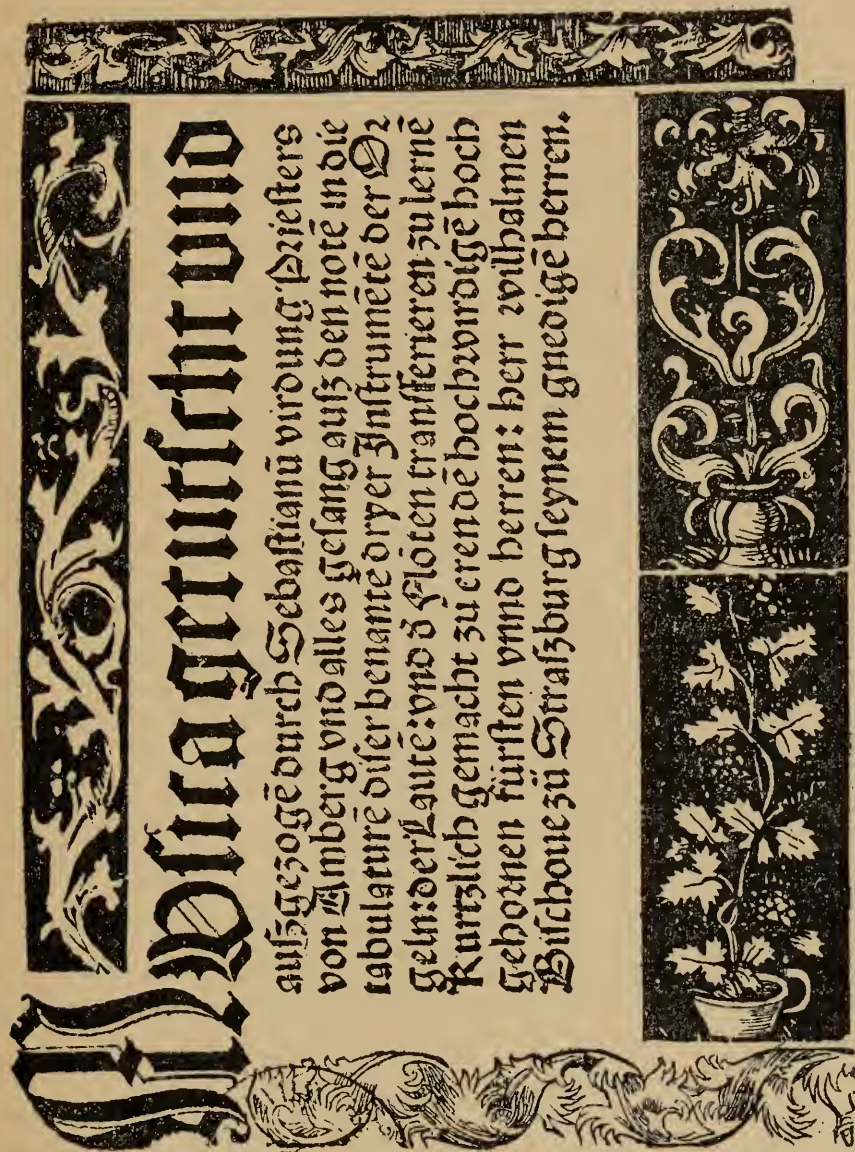 MUsica getutscht vnd
auſzgezogē durch Sebaſtianū virdung Prieſters
von Amberg vnd alles geſang auſz den notē in die
tabulaturē diſer benantē dryer Inſtrumētē der Or
geln: der Lautē: vnd ď Flöten tranſferieren zu lernē
Kurtzlich gemacht zu eren dē hochwirdigē hoch
gebornen fürſten vnnd herren: herr wilhalmen
Biſchoue zů Straſzburg ſeynem gnedigē herren.